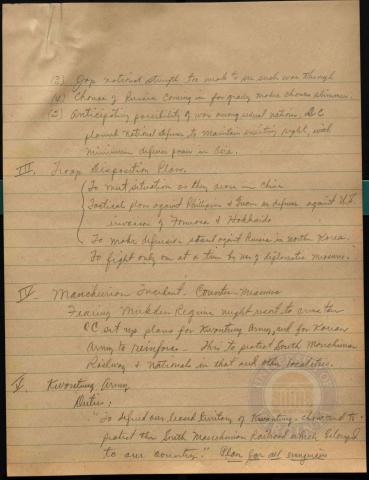 (3) Jap national strength too weak to win such war though
(4) Chance of Russia coming in for grady makes chances slimmer.
(5) Anticipating possibility of war among several nations, S.C.
planned national defense, to maintain existing right, with
minimum defense power in Asia.
III. Troop Disposition Plan.
To meet situation as they arose in China
Tactical plan against Philippines & Guam as defense against U.S.
invasion of Formosa & Hokkaido
To make defensive stand against Russia in North Korea.
To fight only one at a time by use of diplomatic measures.
IV. Manchurian Incident - Counter-Measures
Fearing Mukden Regime might resort to arms the
CC set up plans for Kwantung Army, and for Korean
Army to reinforce. This to protect South Manchurian
Railway & Nationals in that and other localities.
V. Kwantung Army
Duties:
"To defend our leased territory of Kwantung - and to
protect the South Manchurian Railroad which belonged
to our country." Plan for all emergencies